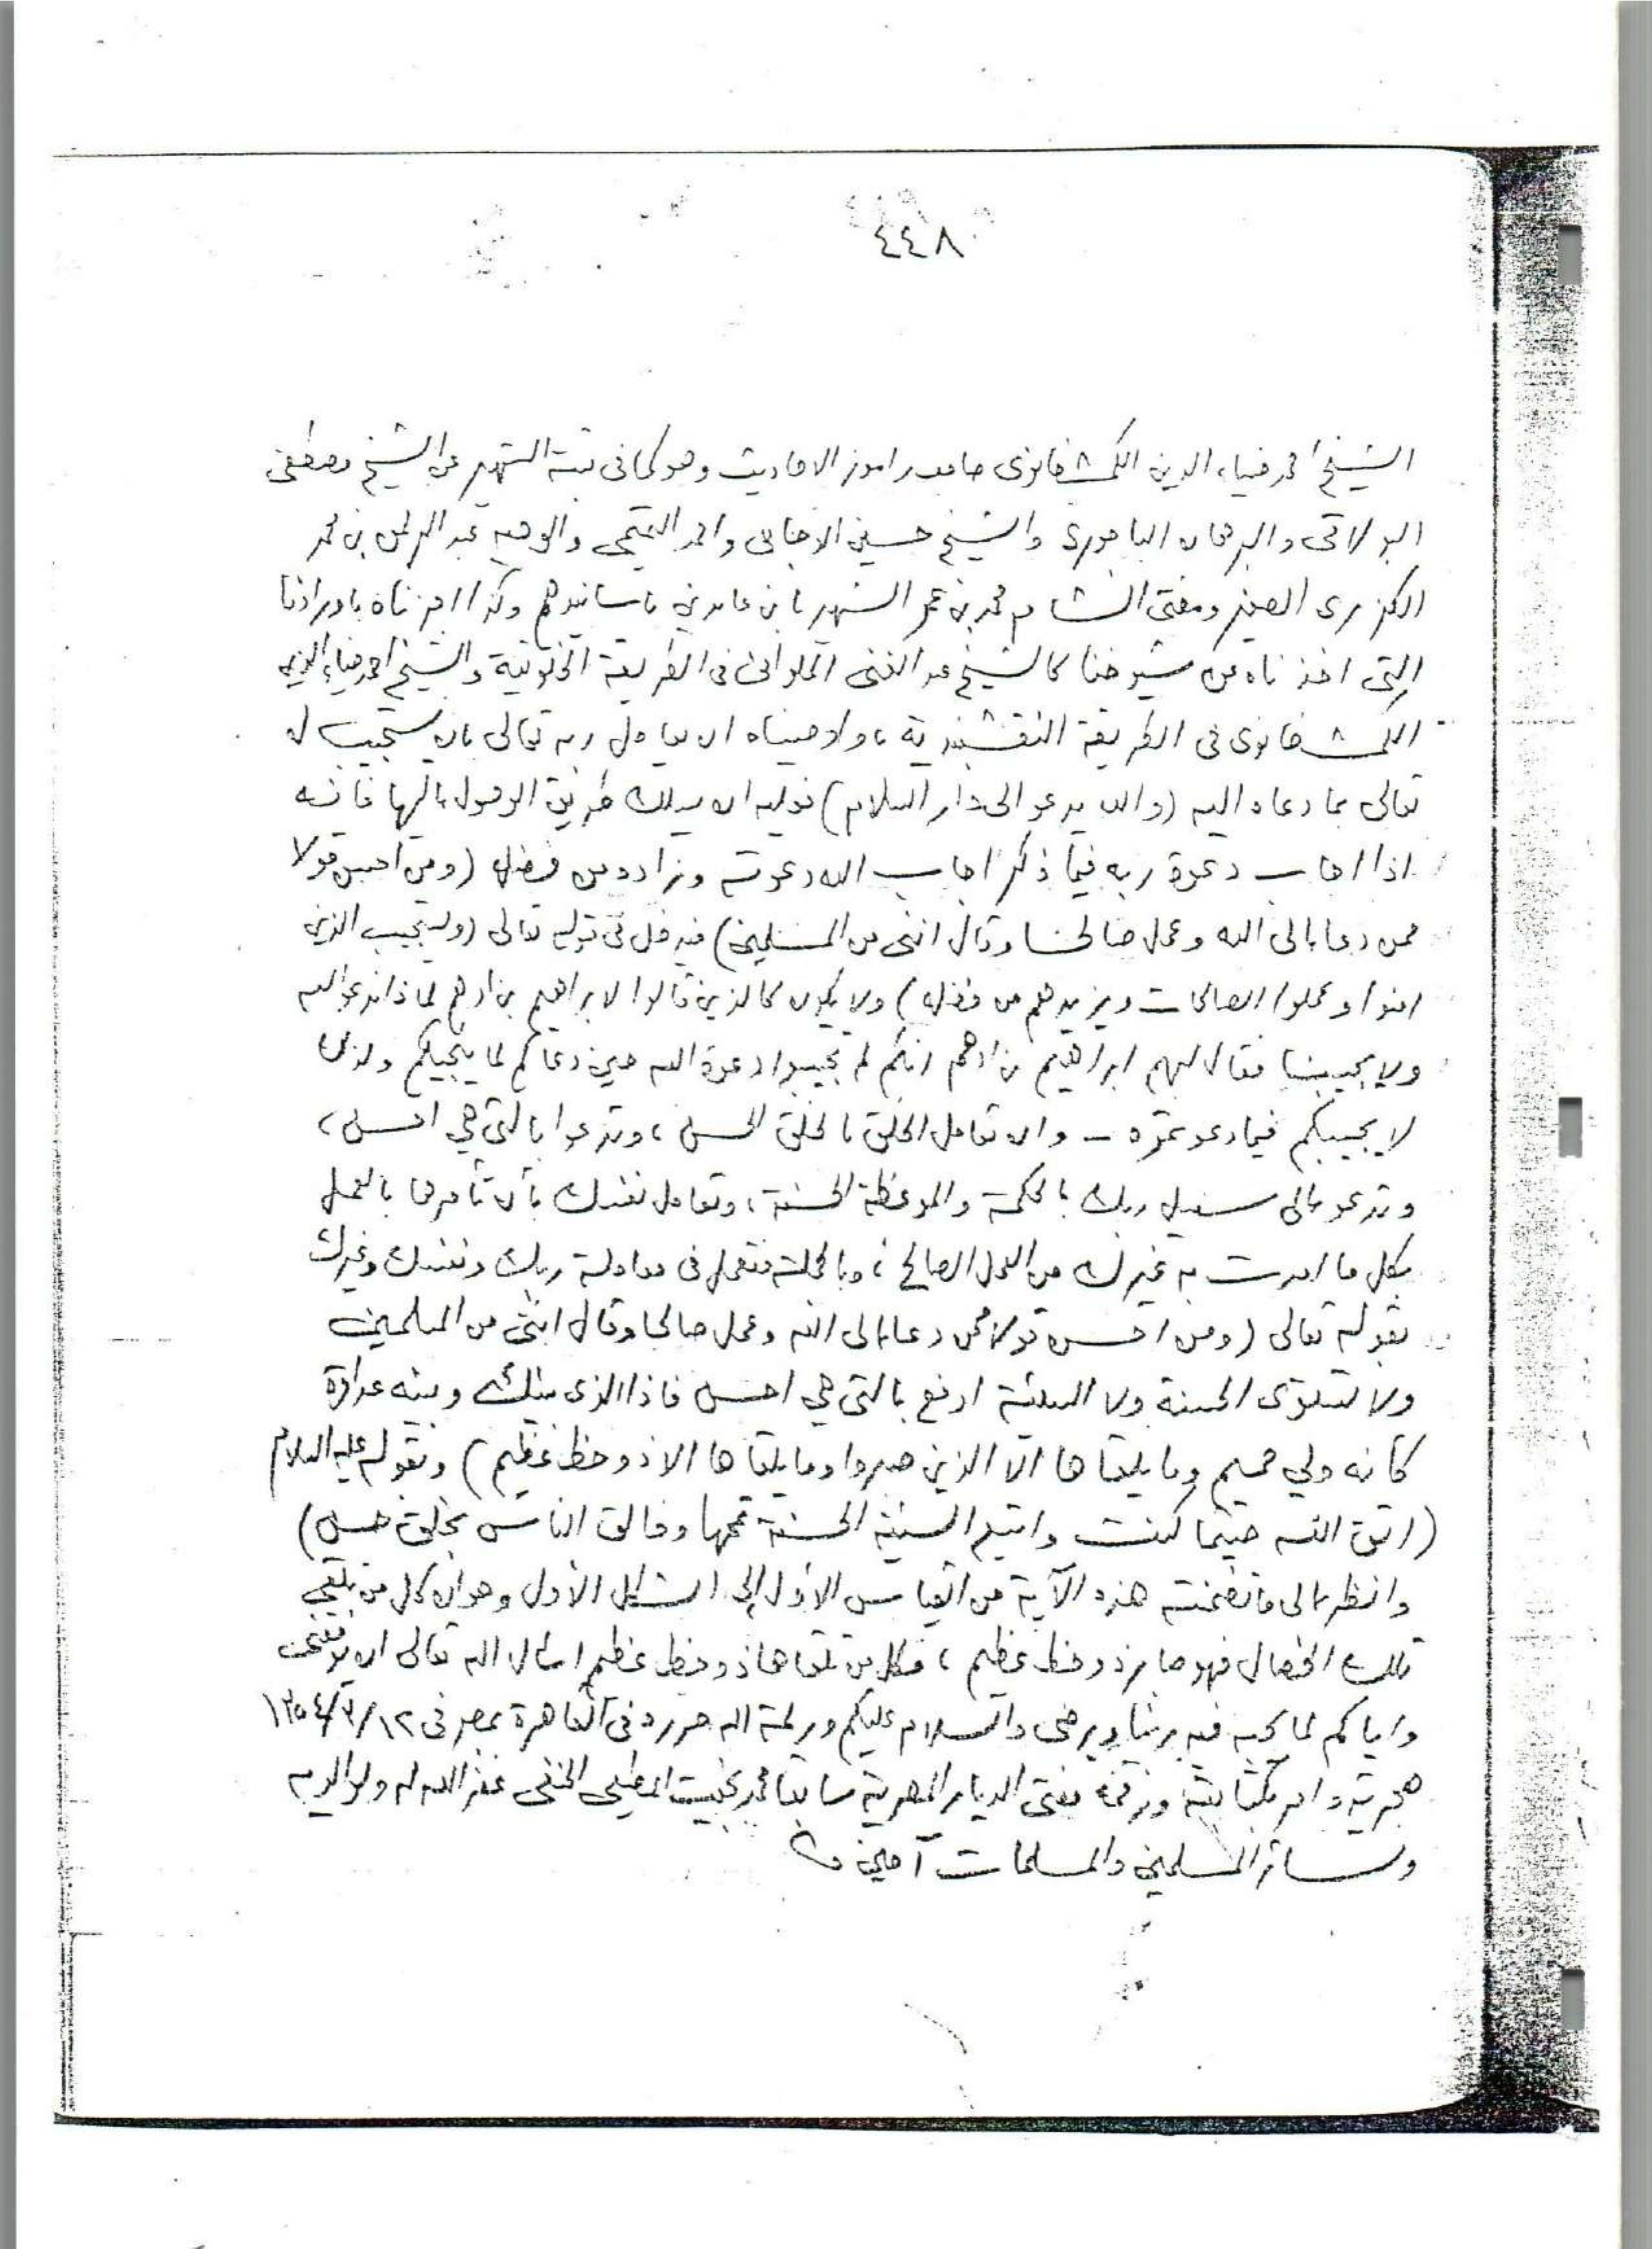 ٤٤٨
الشيخ احمد ضياء الدين الكمشخانوى صاحب راموز الاحاديث وهو كما فى ثبته الشهير عن الشيخ مصطفى
البولاقى والبرهان الباجورى والشيخ حسين الاخنائى واحمد التميمى والوجيه عبد الرحمن بن محمد
الكزبرى الصغير ومفتى الشام محمد بن عمر الشهير بابن عابدين باسانيدهم وكذا اجزناه باورادنا
التى اخذناه عن شيوخنا كالشيخ عبد الغنى الملوانى فى الطريقة الخلوتية والشيخ احمد ضياء الدين
الكمشخانوى فى الطريقة النقشبندية ، واوصيناه ان يعامل ربه تعالى بان يستجيب له
تعالى بما دعاه اليه (والله يدعو الى دار السلام) فعليه ان يسلك طريق الوصول إليها فانه
اذا اجاب دعوة ربه فيما ذكر اجاب الله دعوته وزاده من فضله (ومن احسن قولا
ممن دعا إلى الله وعمل صالحا وقال اننى من المسلمين) فيدخل فى قوله تعالى (ويستجيب الذين
امنوا وعملوا الصالحات ويزيدهم من فضله) ولا يكون كالذين قالوا لابراهيم بن ادهم لماذا ندعو الله
ولا يجيبنا فقال لهم ابراهيم بن ادهم انكم لم تجيبوا دعوة الله حين دعاكم لما ينجيكم ولذلك
لا يجيبكم فيما دعوتموه – وان تعامل الخلق بالخلق الحسن ، وتدعوا بالتي هي احسن ،
وتدعو إلى سبيل ربك بالحكمة والموعظة الحسنة ، وتعامل نفسك بأن تأمرها بالعمل
بكل ما امرت به غيرك من العمل الصالح ، وبالجملة فتعمل فى معاملة ربك ونفسك وغيرك
بقوله تعالى (ومن احسن قولا ممن دعا إلى الله وعمل صالحا وقال اننى من المسلمين
ولا تستوى الحسنة ولا السيئة ادفع بالتي هي احسن فاذا الذى بينك وبينه عداوة
كأنه ولي حميم وما يلقاها الا الذين صبروا وما يلقاها الا ذو حظ عظيم) وبقوله عليه السلام
(اتق الله حيثما كنت واتبع السيئة الحسنة تمحها وخالق الناس بخلق حسن)
وانظر إلى ما تضمنته هذه الآية من القياس الأول إلى الشكل الأول وهو أن كل من يلقى
تلك الخصال فهو صابر ذو حظ عظيم ، فكل من تلقاها ذو حظ عظيم اسال الله تعالى ان يوفقنى
واياكم لما يحبه فيه ربنا ويرضى والسلام عليكم ورحمة الله حرر فى القاهرة بمصر فى ١٢/٣/١٣٥٤
هجرية وامر بكتابته ورقمه مفتى الديار المصرية سابقا محمد بخيت المطيعى الحنفى غفر الله له ولوالديه
وسائر المسلمين والمسلمات آمين